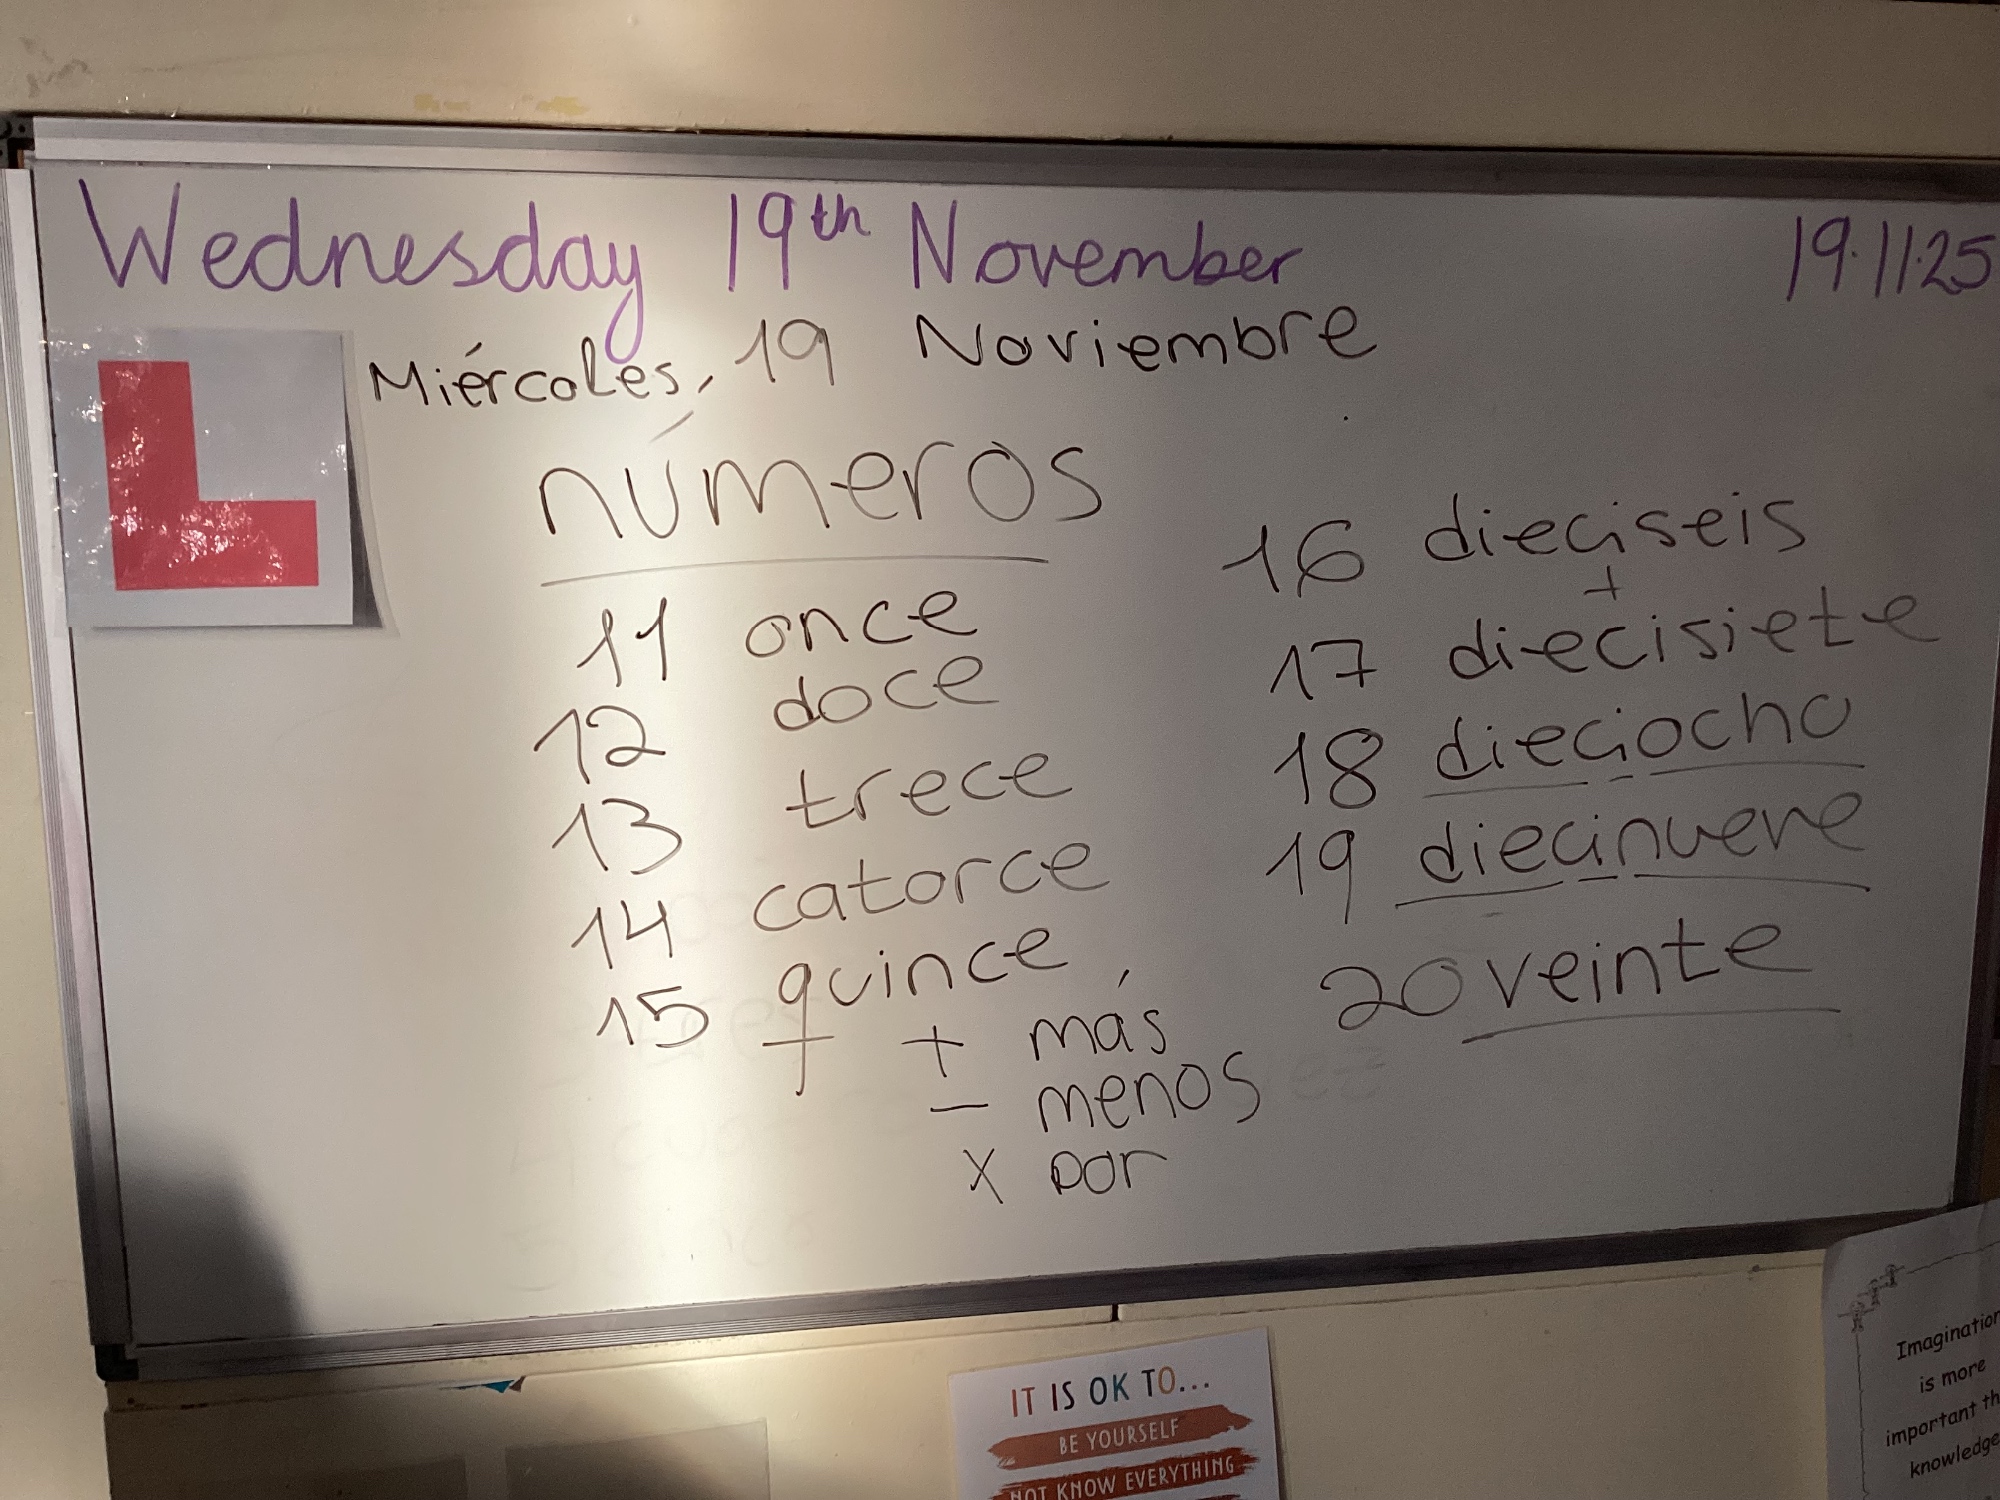 Wednesday 19th November 19.11.25
Miércoles, 19 Noviembre
L
números
11 once
12 doce
13 trece
14 catorce
15 quince
+ más
- menos
x por
16 dieciseis
+
17 diecisiete
18 dieciocho
19 diecinueve
20 veinte
IT IS OK TO...
BE YOURSELF
NOT KNOW EVERYTHING
Imagination
is more
important th
knowledge